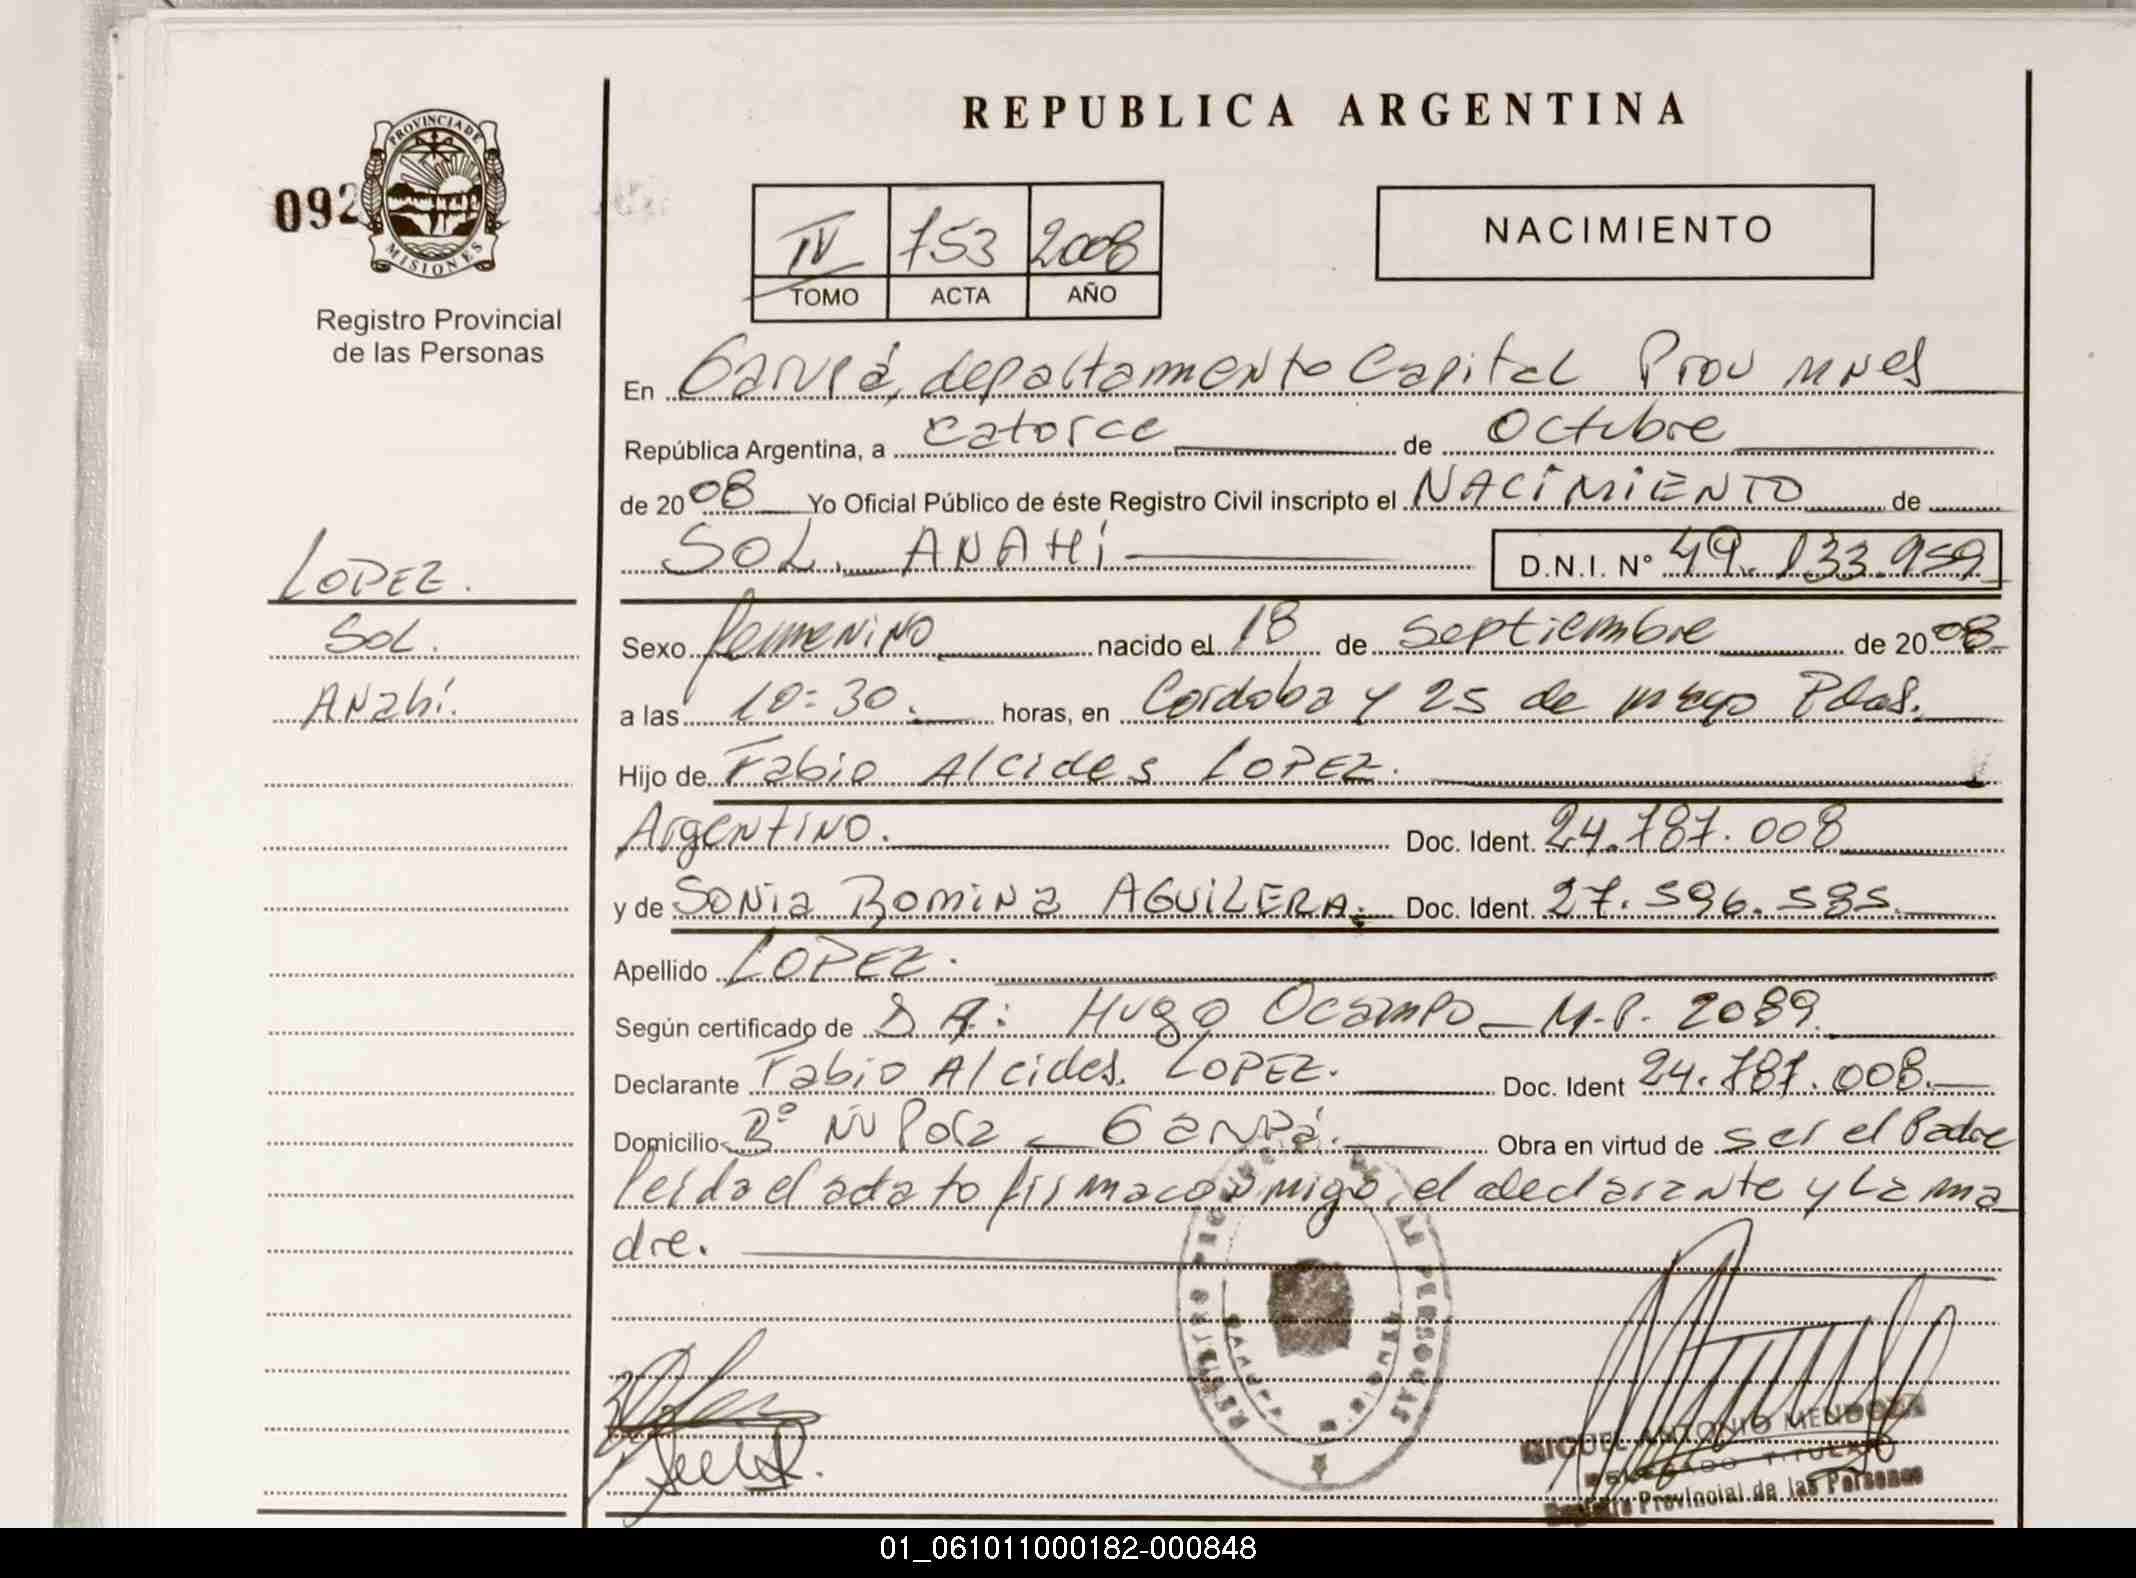 REPUBLICA ARGENTINA
092
PROVINCIA DE
MISIONES
Registro Provincial
de las Personas
IV 753 2008
TOMO ACTA AÑO
NACIMIENTO
En Garupá, departamento Capital Prov Mnes
República Argentina, a catorce de Octubre
de 2008 Yo Oficial Público de éste Registro Civil inscripto el NACIMIENTO de
SOL. ANAHÍ D.N.I. Nº 49.133.959
LOPEZ.
SOL.
Anahí.
Sexo femenino nacido el 18 de septiembre de 2008
a las 10:30. horas, en Cordoba y 25 de mayo Pdas.
Hijo de Fabio Alcides LOPEZ.
Argentino. Doc. Ident. 24.787.008
y de Sonia Romina AGUILERA. Doc. Ident. 27.596.585.
Apellido LOPEZ.
Según certificado de Hugo Ocampo M.P. 2089
Declarante Fabio Alcides. LOPEZ. Doc. Ident 24.787.008.
Domicilio Bº Ñu Porá - Garupá. Obra en virtud de ser el Padre
leida el acta to firma conmigo, el declarante y la ma
dre.
REGISTRO PROVINCIAL DE LAS PERSONAS
GARUPA
MISIONES
MIGUEL ANTONIO MENDOZA
DELEGADO TITULAR
Registro Provincial de las Personas
01_061011000182-000848